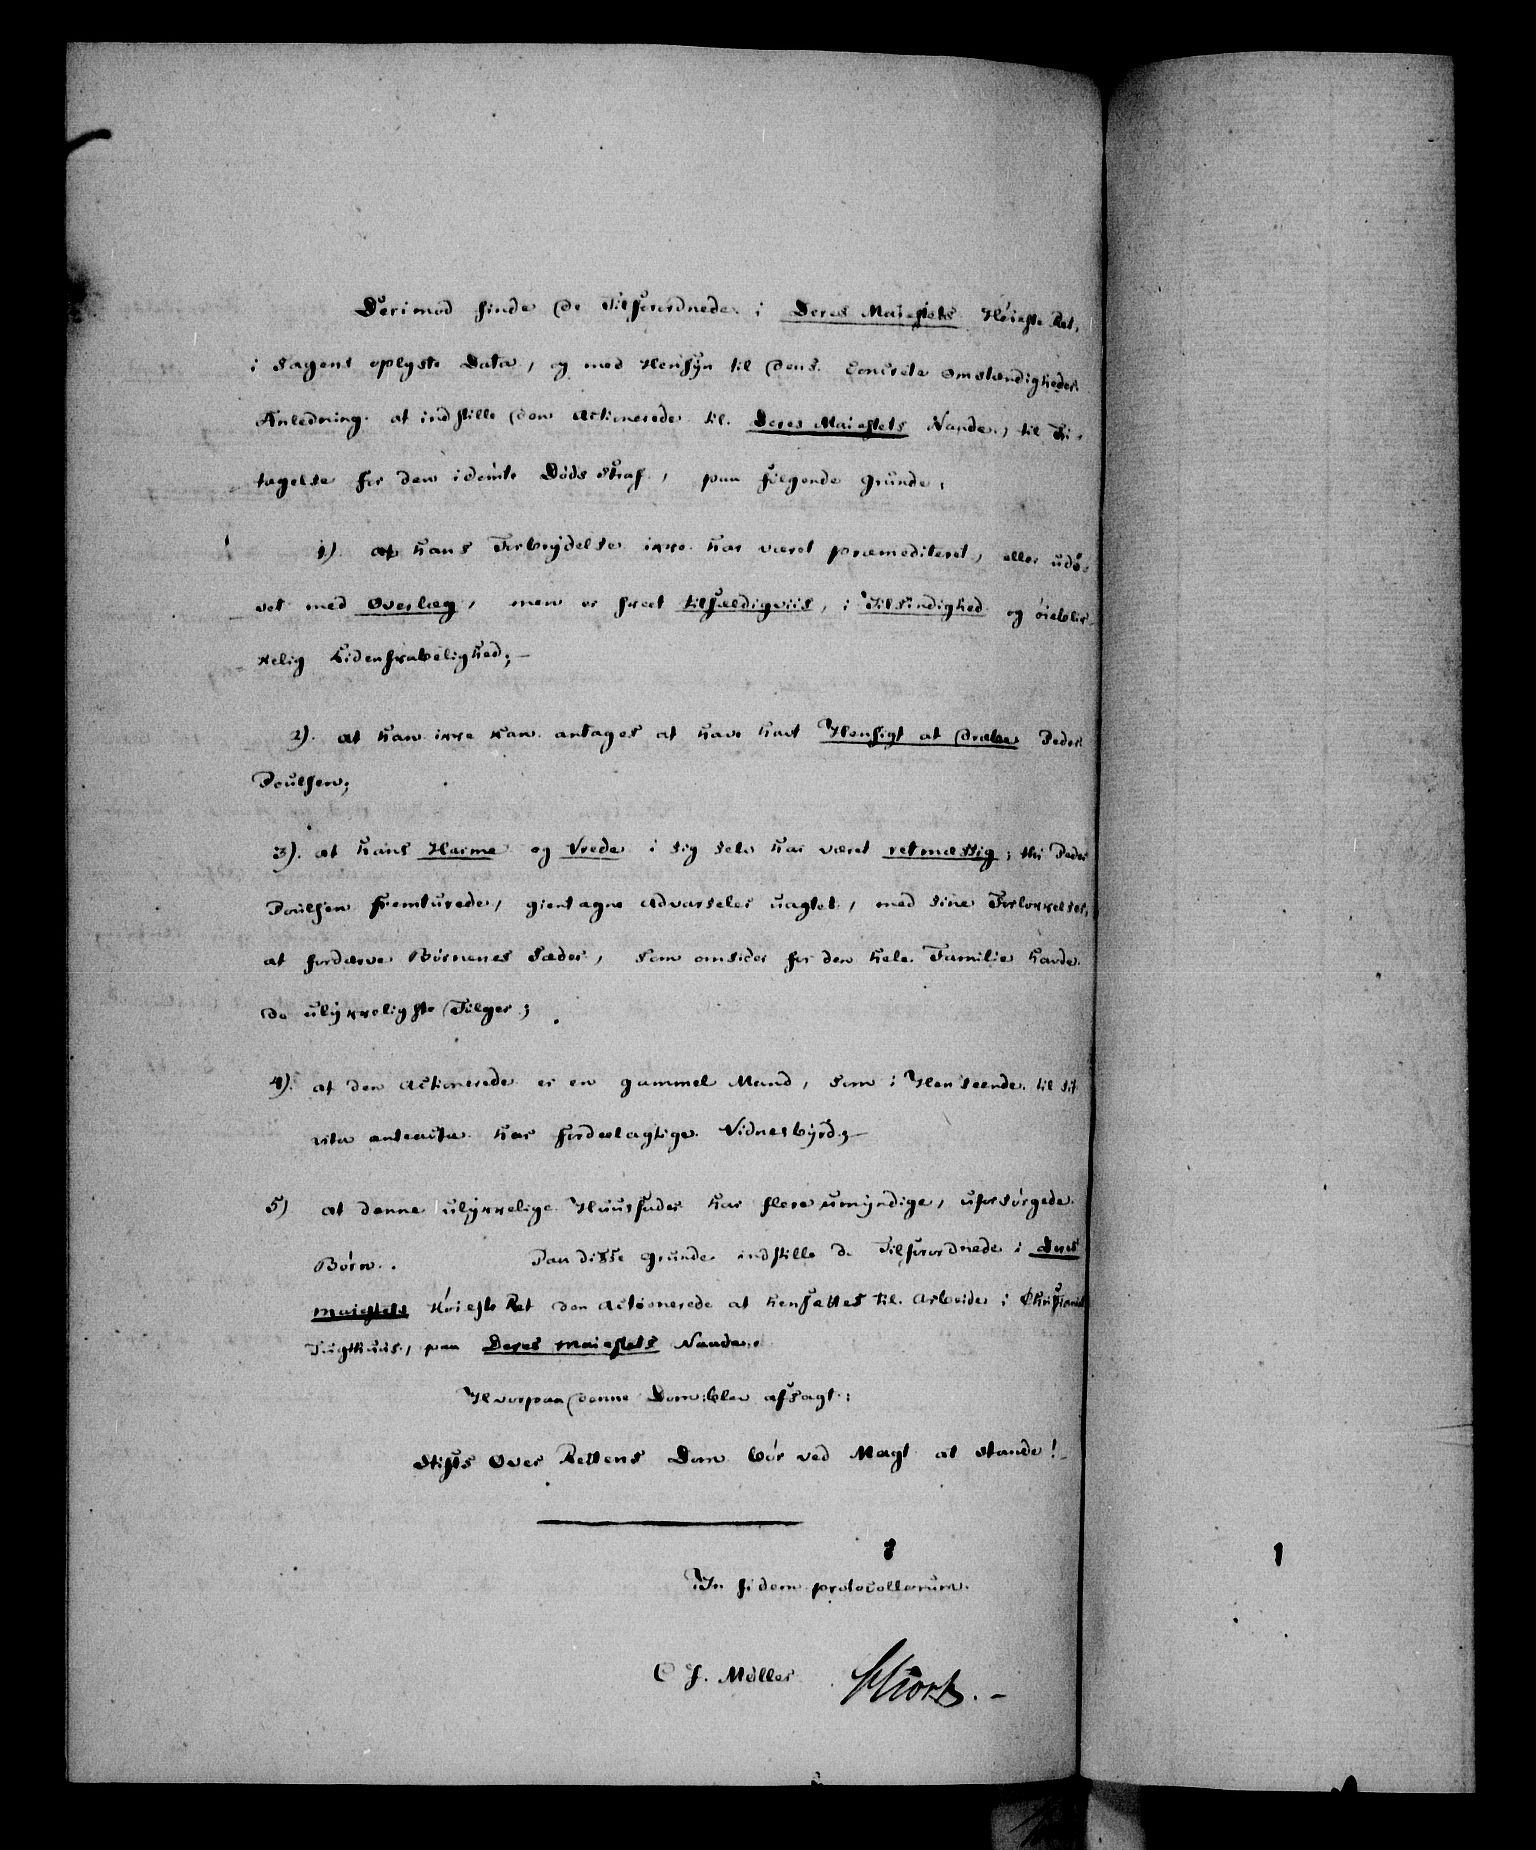 Derimod finde de Tilforordnede i Deres Maiestets Høieste Ret,
i Sagens oplyste Data, og med Hensyn til dens concrete Omstændigheder
Anledning at indstille den Actionerede til Deres Maiestets Naade, til Fri-
tagelse for den idømte Døds Straf, paa følgende Grunde,
1). at hans Forbrydelse ikke har været præmediteret, eller udø-
vet med Overlæg, men er skeet tilfældigviis, i Ilsindighed og øieblik-
kelig Lidenskabelighed;-
2). at han ikke kan antages at have havt Hensigt at dræbe Peder
Poulsen;
3). at hans Harme og Vrede i sig selv har været retmæssig; thi Peder
Poulsen fremturede, gientagne Advarseler uagtet, med sine Forlokkelser,
at fordærve Børnenes Sæder, som omsider for den hele Familie havde
de ulykkeligste Følger;
4). at den Actionerede er en gammel Mand, som i Henseende til sit
vita anteacta har fordeelagtige Vidnesbyrd;-
5) at denne ulykkelige Huusfader har flere umyndige, uforsørgede
Børn. Paa disse Grunde indstille de Tilforordnede i Deres
Maiestets Høieste Ret den Actionerede at hensættes til Arbeide i Christiania
Tugthuus, paa Deres Maiestets Naade.
Hvorpaa denne Dom blev afsagt:
Stifts Over Rettens Dom bør ved Magt at stande!
In fidem protocollorum.
C F. Møller Hiorth.-